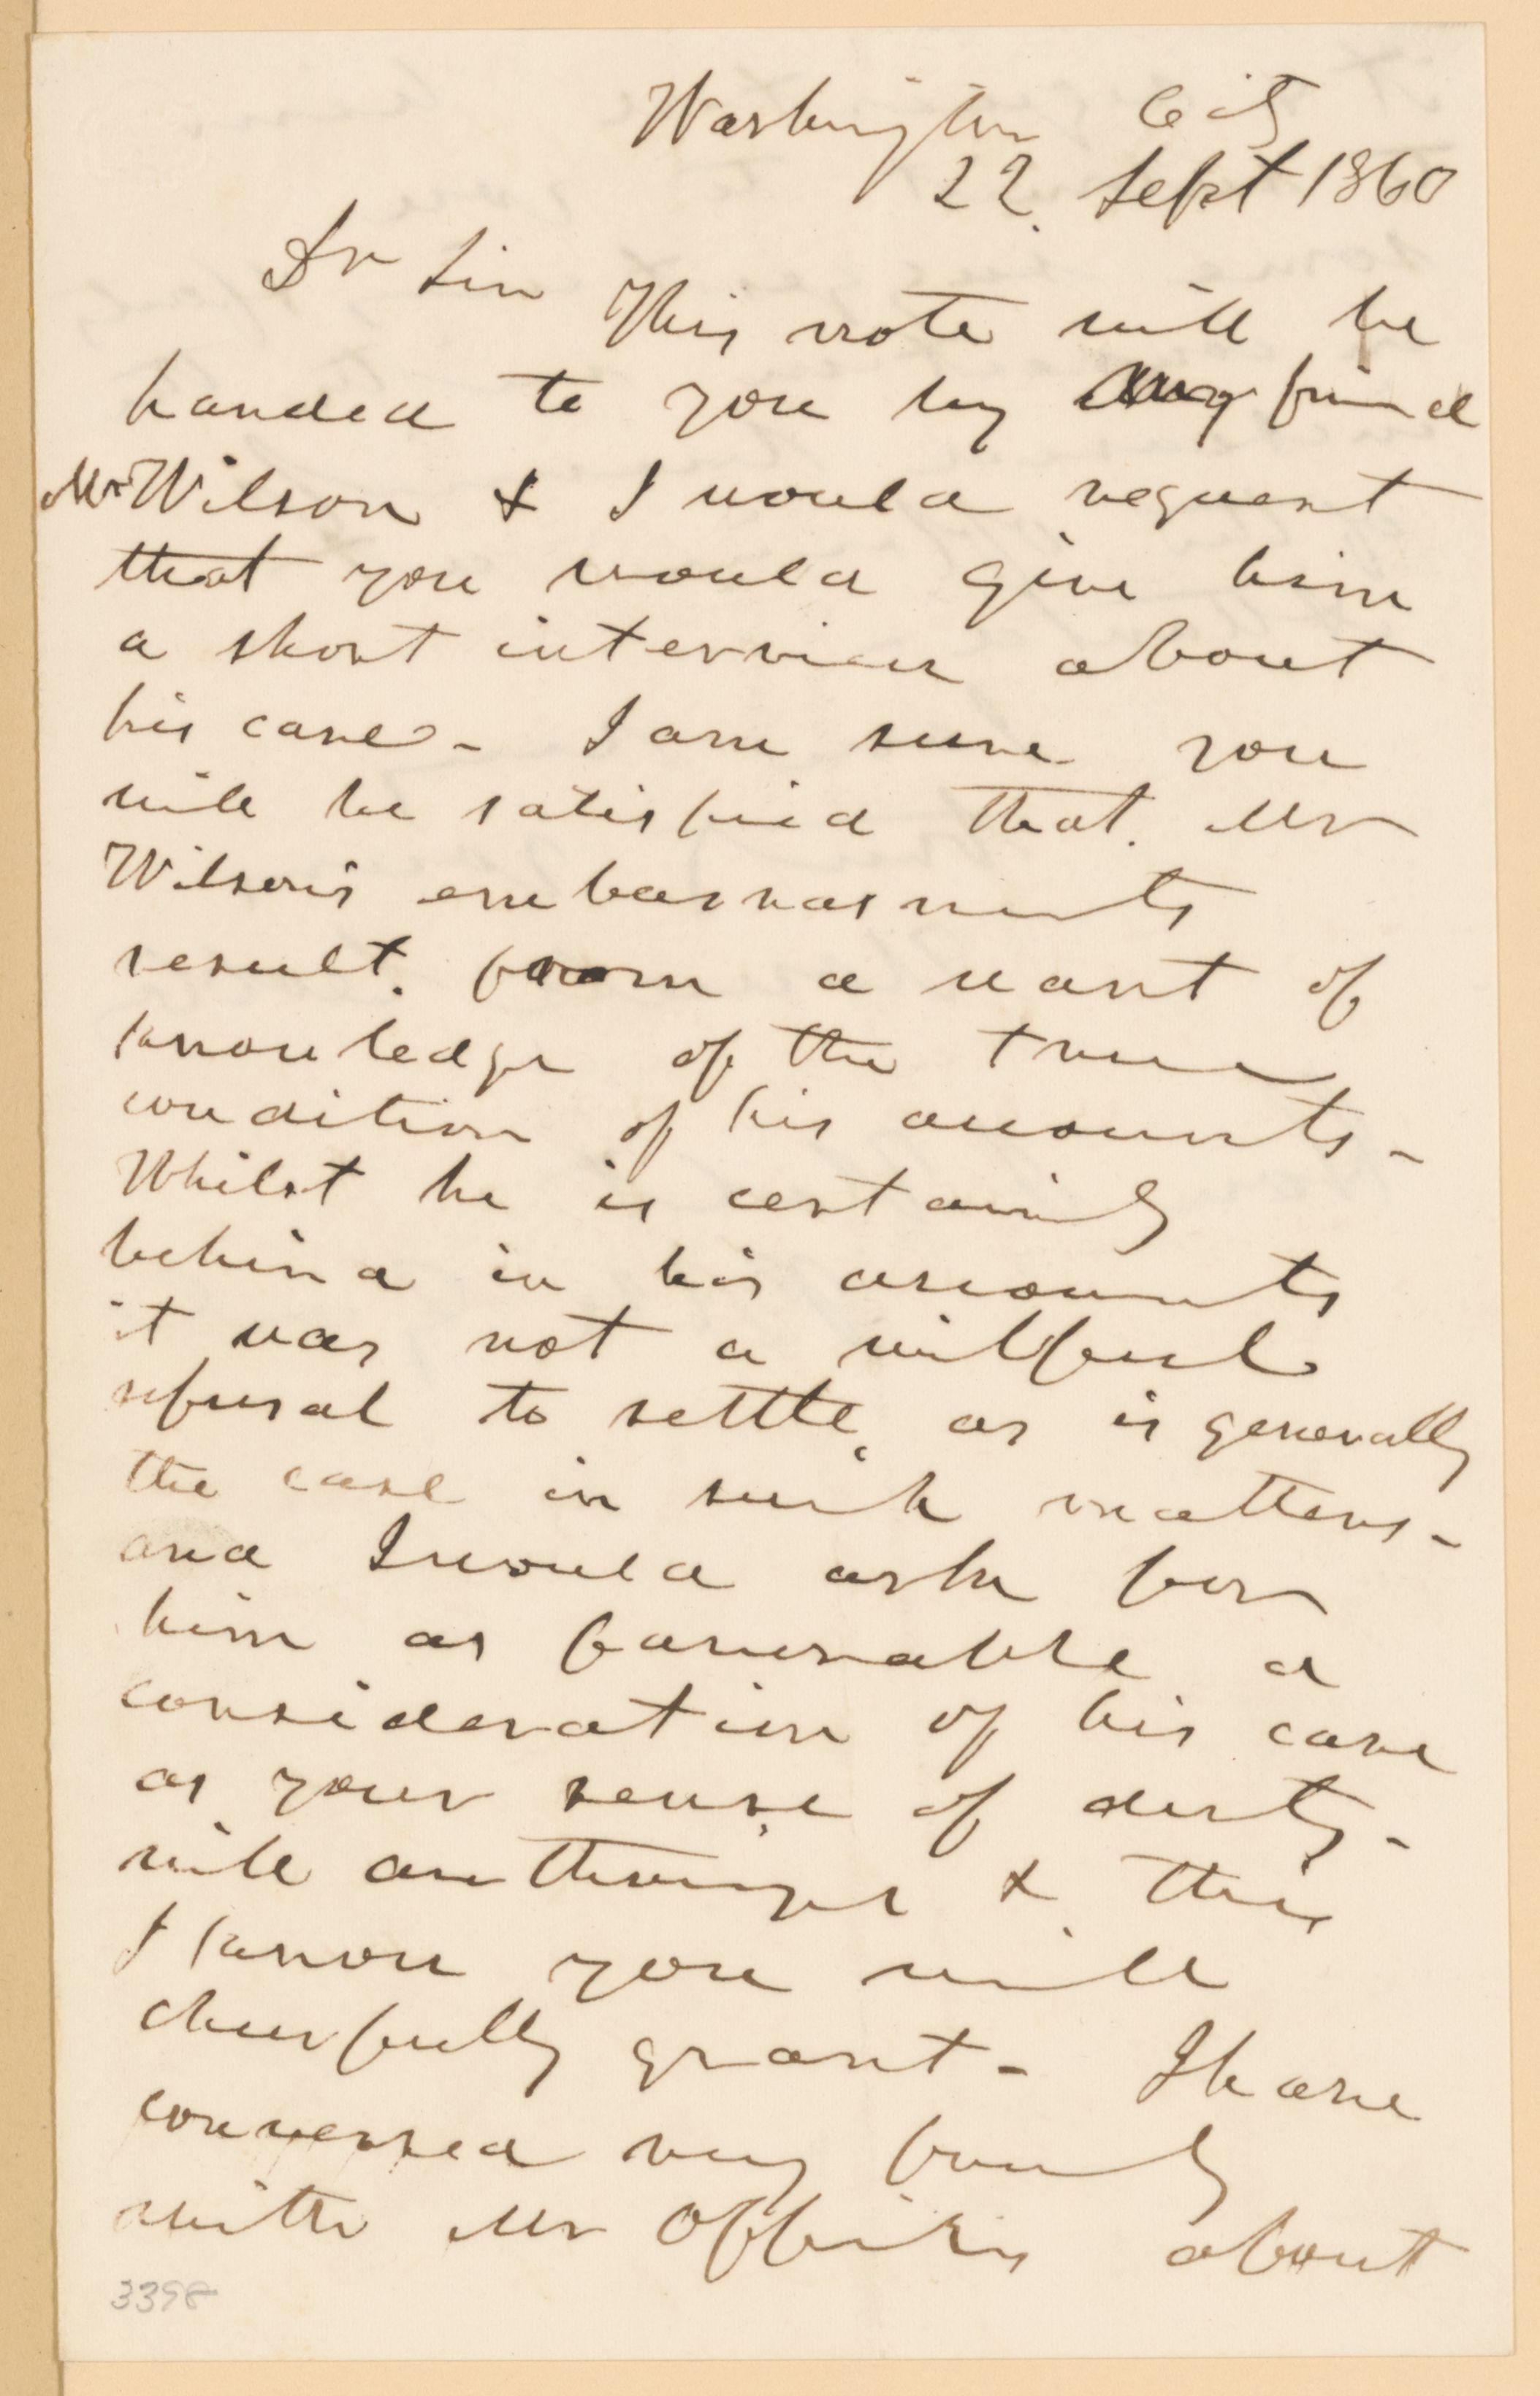 Washington City
22. Sept 1860
Dr Sir
This note will be
handed to you by my friend
Mr Wilson & I would request
that you would give him
a short interview about
his case - I am sure you
will be satisfied that Mr
Wilson's embarrasments
result from a want of
knowledge of the true
condition of his accounts -
Whilst he is certainly
behind in his accounts
it was not a wilfull
refusal to settle, as is generally
the case in such matters -
and I would ask for
him as favorable a
consideration of his case
as your sense of duty -
will authorize & this
I know you will
cheerfully grant - I have
conversed very freely
with Mr about
3398